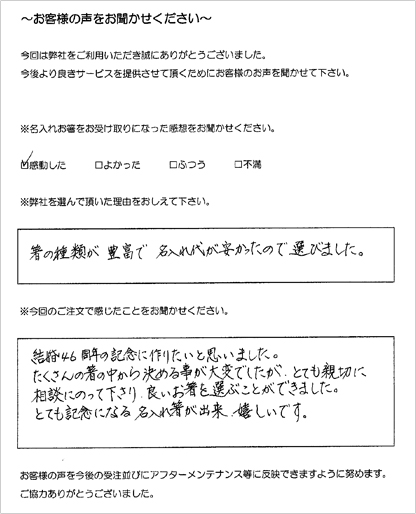 ～お客様の声をお聞かせください～
今回は弊社をご利用いただき誠にありがとうございました。
今後より良きサービスを提供させて頂くためにお客様のお声を聞かせて下さい。
※名入れお箸をお受け取りになった感想をお聞かせください。
☑感動した □よかった □ふつう □不満
※弊社を選んで頂いた理由をおしえて下さい。
箸の種類が豊富で 名入れ代が安かったので選びました。
※今回のご注文で感じたことをお聞かせください。
結婚46周年の記念に作りたいと思いました。
たくさんの箸の中から決める事が大変でしたが、とても親切に
相談にのって下さり、良いお箸を選ぶことができました。
とても記念になる名入れ箸が出来、嬉しいです。
お客様の声を今後の受注並びにアフターメンテナンス等に反映できますように努めます。
ご協力ありがとうございました。